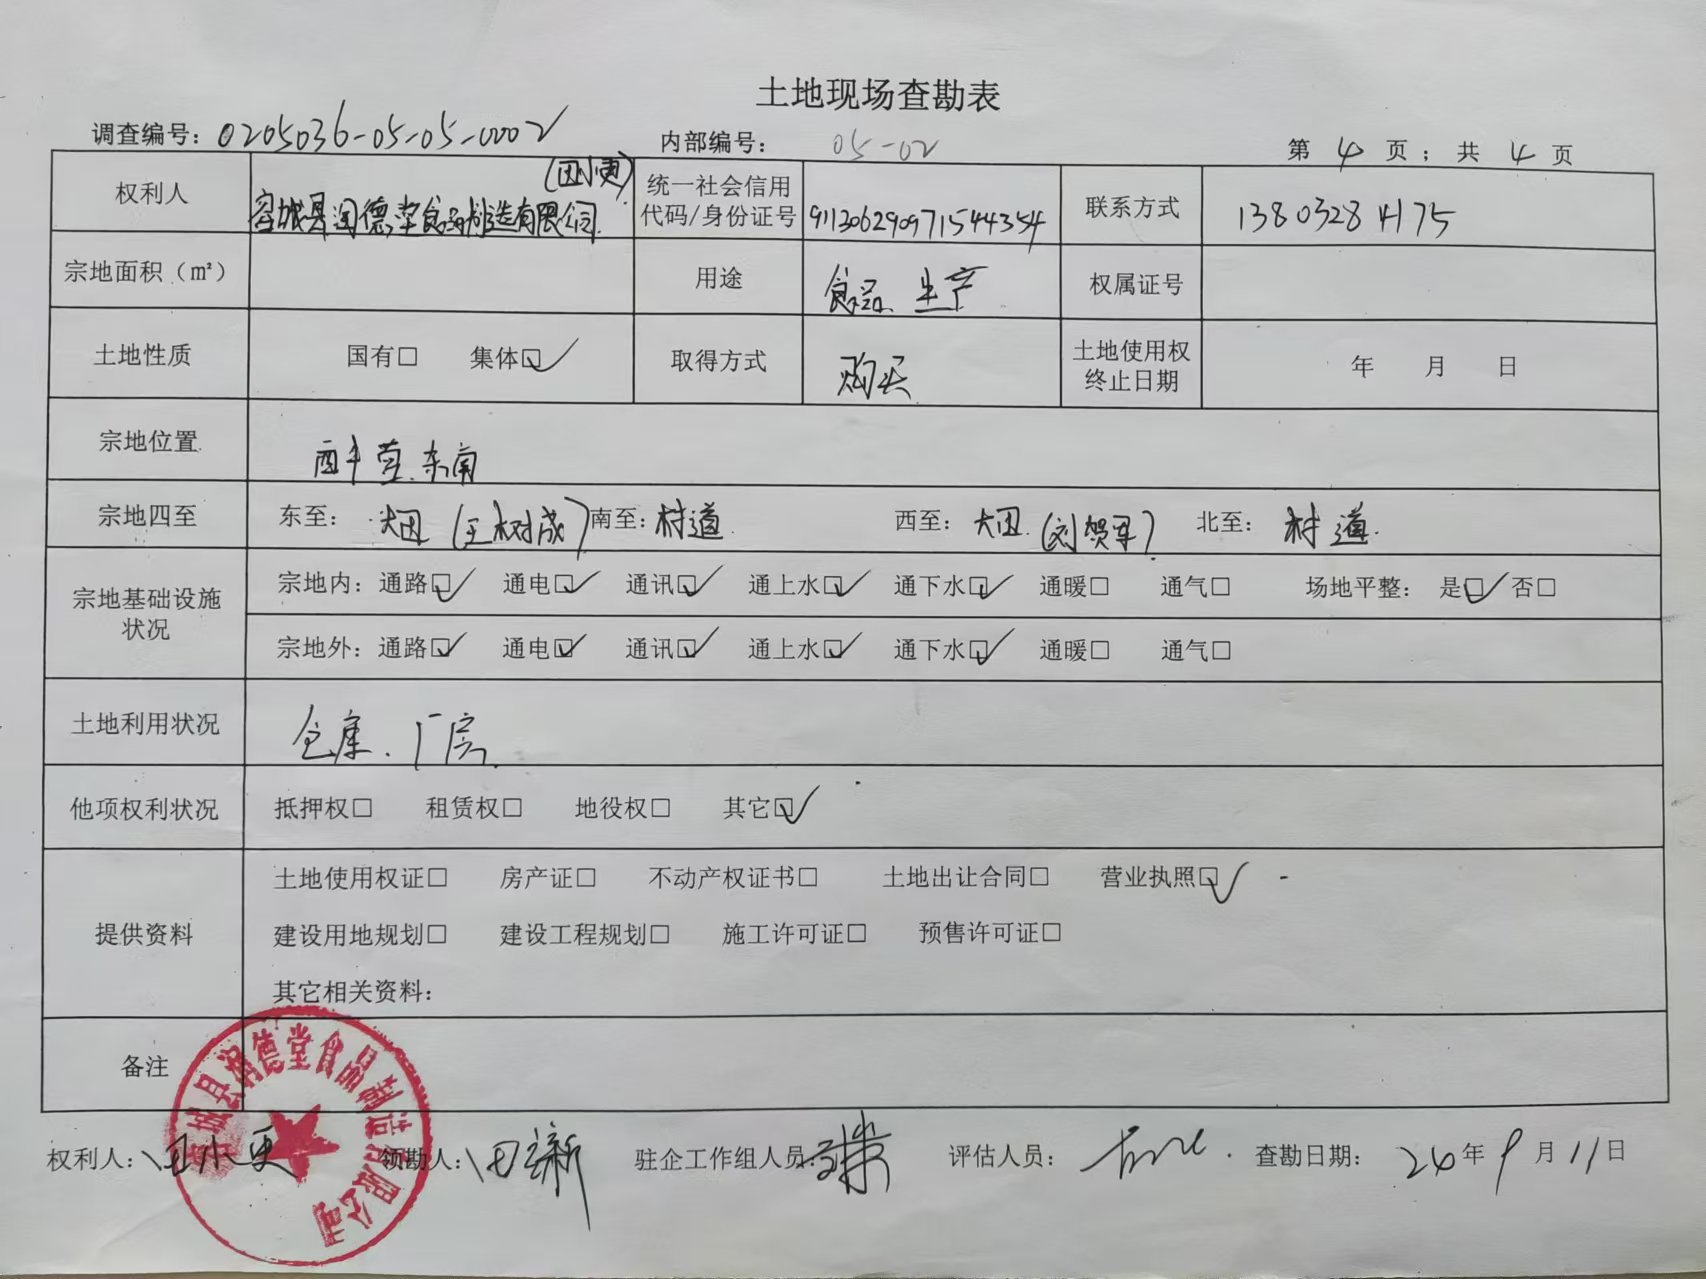 土地现场查勘表
调查编号：0205036-05-05-0002 内部编号： 05-02 第 4 页；共 4 页
权利人 容城县润德堂食品制造有限公司（田小更） 统一社会信用代码/身份证号 911306290971544354 联系方式 13803284175
宗地面积（㎡） 用途 食品生产 权属证号
土地性质 国有□ 集体☑ 取得方式 购买 土地使用权终止日期 年 月 日
宗地位置 西牛营东南
宗地四至 东至： 大田（王树成） 南至：村道 西至：大田（刘贺军） 北至：村道
宗地基础设施状况 宗地内：通路☑ 通电☑ 通讯☑ 通上水☑ 通下水☑ 通暖□ 通气□ 场地平整： 是☑ 否□
宗地外：通路☑ 通电☑ 通讯☑ 通上水☑ 通下水☑ 通暖□ 通气□
土地利用状况 仓库、厂房
他项权利状况 抵押权□ 租赁权□ 地役权□ 其它☑
提供资料 土地使用权证□ 房产证□ 不动产权证书□ 土地出让合同□ 营业执照☑
建设用地规划□ 建设工程规划□ 施工许可证□ 预售许可证□
其它相关资料：
备注
容城县润德堂食品制造有限公司
权利人：田小更 领勘人：田新 驻企工作组人员： 评估人员： 查勘日期： 24年9月11日